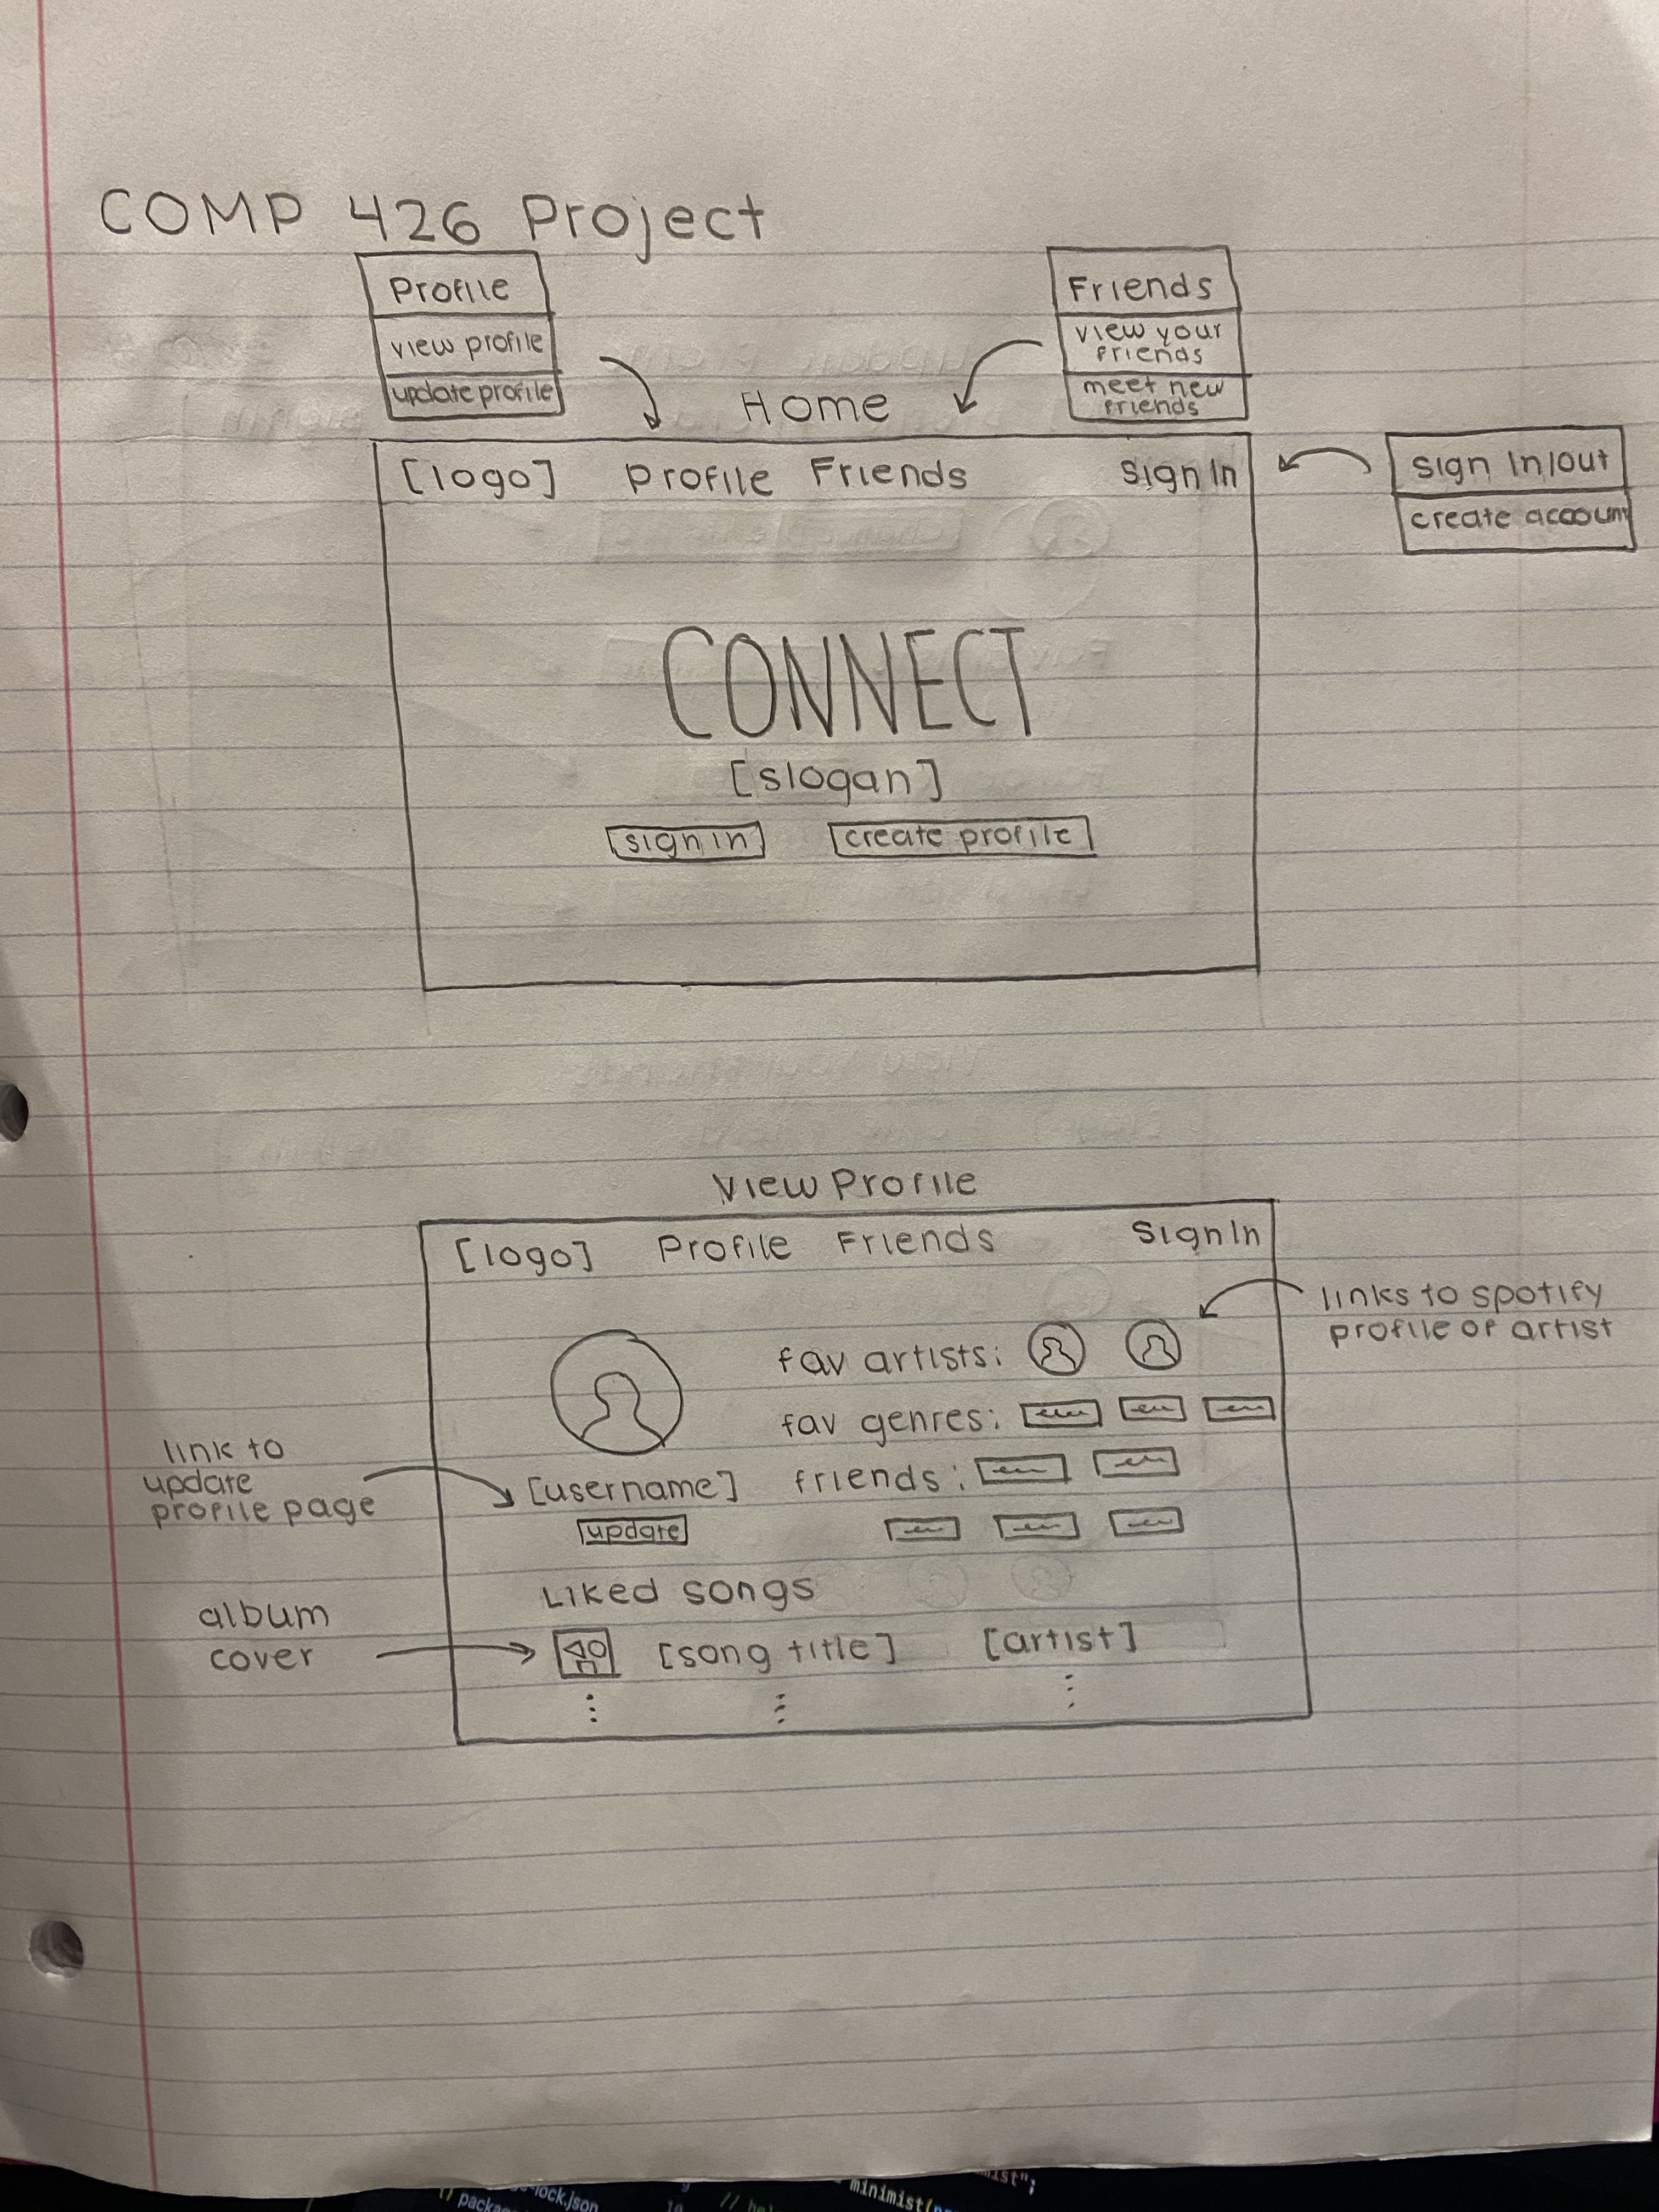 COMP 426 Project
Profile
view profile
update profile
Friends
view your
friends
meet new
friends
Home
[logo] Profile Friends Sign In
sign in/out
create account
CONNECT
[slogan]
sign in create profile
View Profile
[logo] Profile Friends Sign In
links to spotify
profile of artist
fav artists:
fav genres:
link to
update
profile page
[username] friends:
update
Liked songs
album
cover
[song title] [artist]
lock.json
// packa
10
minimist(